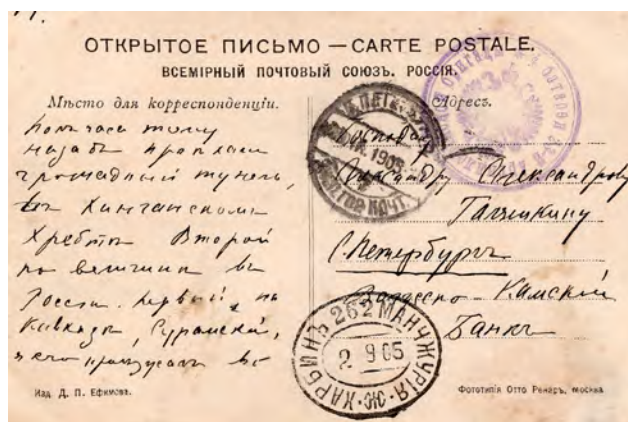 ОТКРЫТОЕ ПИСЬМО — CARTE POSTALE.
ВСЕМІРНЫЙ ПОЧТОВЫЙ СОЮЗЪ. РОССІЯ.
Мѣсто для корреспонденціи.
Полъ часа тому
назадъ проѣхали
громадный тунель,
въ Хинганскомъ
Хребтѣ Второй
по величинѣ въ
Россіи. первый, на
Кавказѣ, Сурамскій,
я его проѣзжалъ въ
Адресъ.
Господину
Александру Александрову
С. Петербургъ
Камскій
Банкъ
1905
ХАРБИНЪ 262 МАНЧЖУРІЯ
2 9 05
Изд. Д. П. Ефимова.
Фототипія Отто Ренаръ, Москва